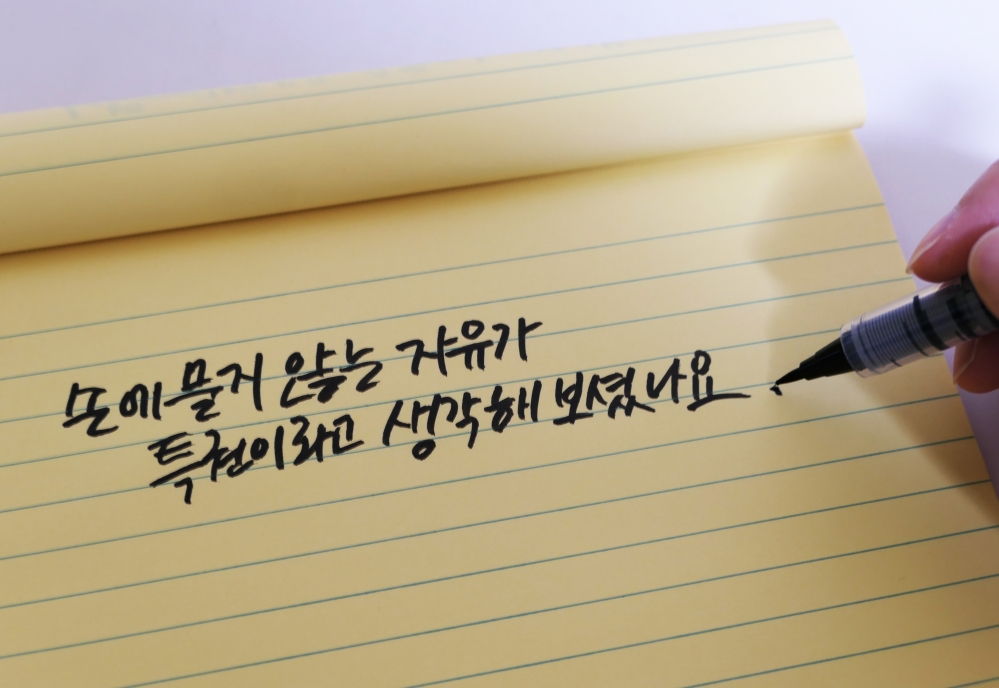 손에 들지 않는 자유가
특권이라고 생각해 보셨나요.